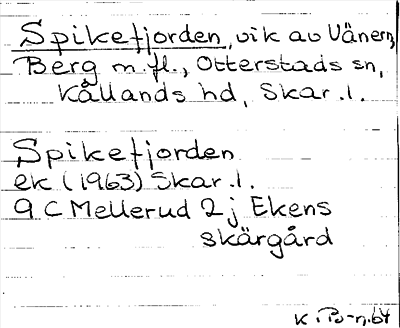 Spikefjorden, vik av Vänern,
Berg m. fl., Otterstads sn,
Kållands hd, Skar. l.
Spikefjorden
ek (1963) Skar. l.
9 C Mellerud 2 j Ekens
skärgård